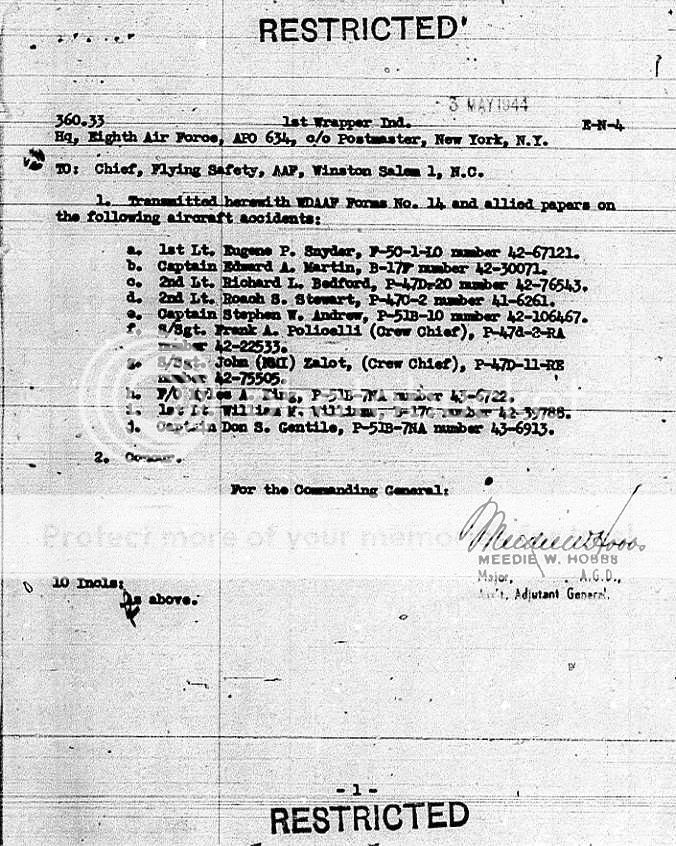 RESTRICTED
3 MAY 1944
360.33 1st Wrapper Ind. E-N-4
Hq, Eighth Air Force, APO 634, c/o Postmaster, New York, N.Y.
TO: Chief, Flying Safety, AAF, Winston Salem 1, N.C.
1. Transmitted herewith WDAAF Forms No. 14 and allied papers on
the following aircraft accidents:
a. 1st Lt. Eugene P. Snyder, F-50-1-LO number 42-67121.
b. Captain Edward A. Martin, B-17F number 42-30071.
c. 2nd Lt. Richard L. Bedford, P-47D-20 number 42-76543.
d. 2nd Lt. Roach S. Stewart, P-47C-2 number 41-6261.
e. Captain Stephen W. Andrew, P-51B-10 number 42-106467.
f. S/Sgt. Frank A. Policelli (Crew Chief), P-47d-2-RA
number 42-22533.
g. S/Sgt. John (NMI) Zalot, (Crew Chief), P-47D-11-RE
number 42-75505.
h. F/O A. King, P-51B-7NA number 43-6722.
i. 1st Lt. William Williams, B-17G number 42-39788.
j. Captain Don S. Gentile, P-51B-7NA number 43-6913.
2. Concur.
For the Commanding General:
Protect more of your memories
Meedie W Hobbs
MEEDIE W. HOBBS
Major, A.G.D.,
Ass't, Adjutant General.
10 Incls:
As above.
- 1 -
RESTRICTED